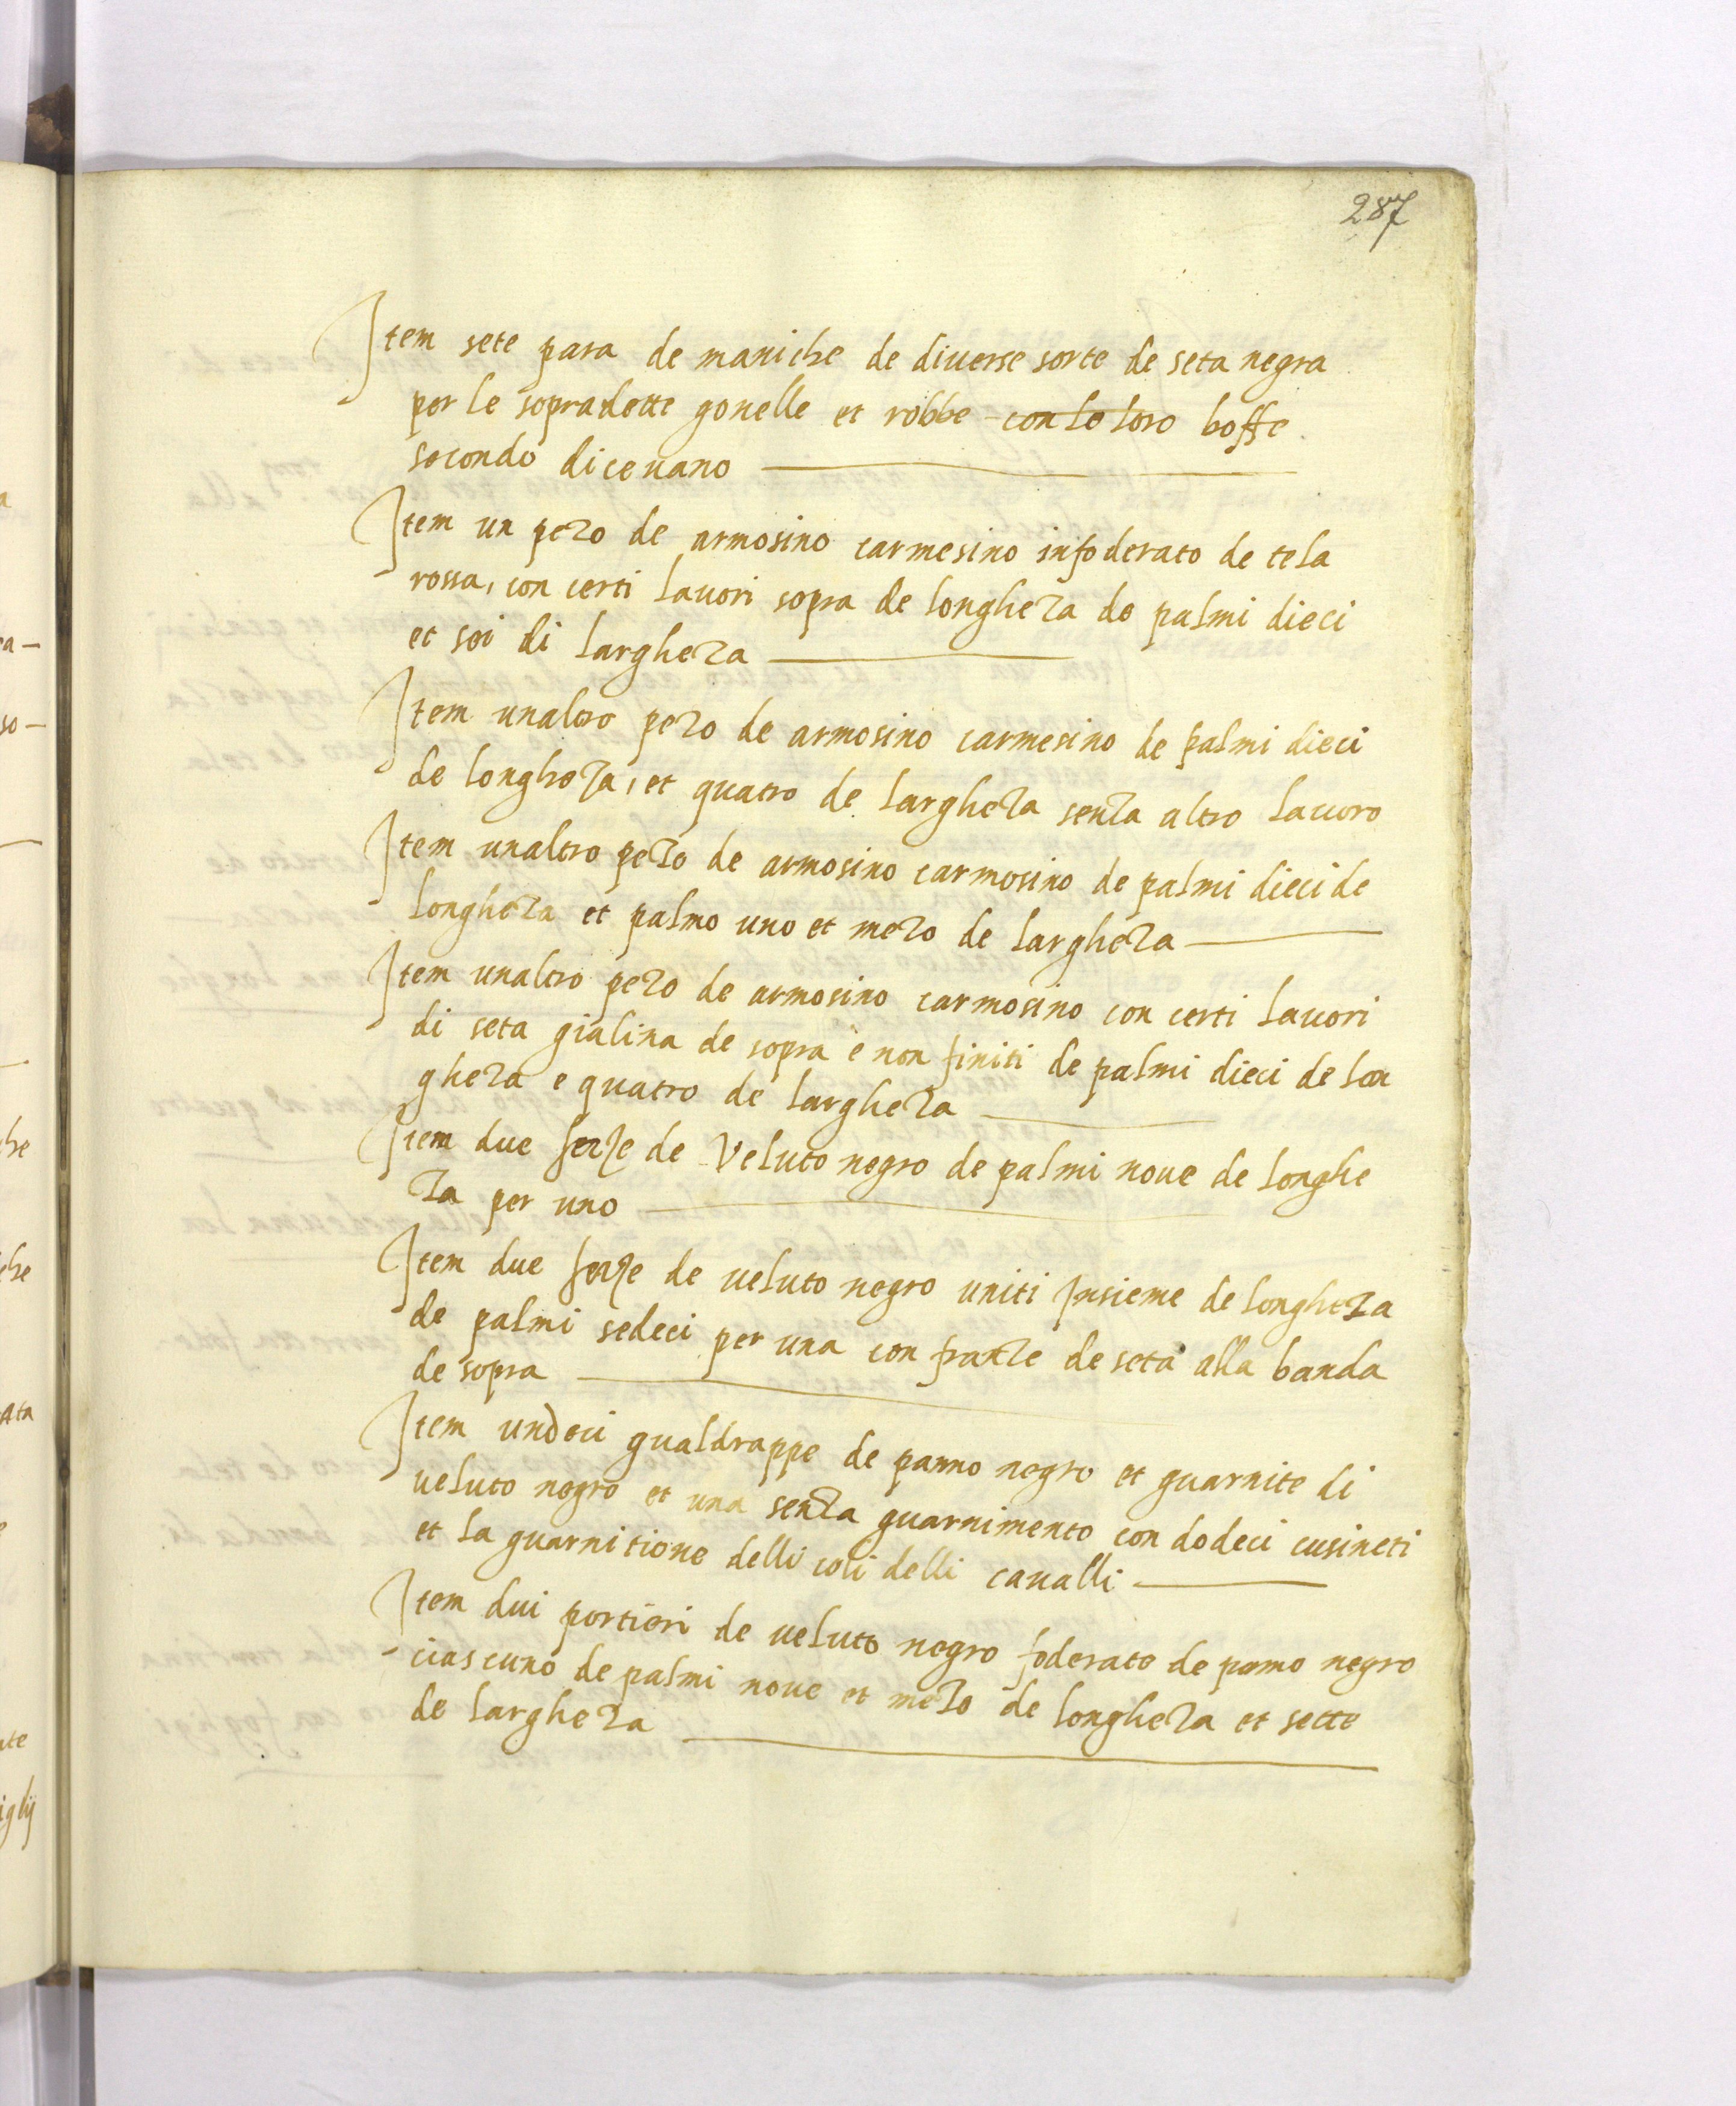 287
Item sete para de maniche de diuerse sorte de seta negra
per le sopradette gonelle et robbe con le loro boffe
secondo diceuano
Item un pezo de armosino carmesino infoderato de tela
rossa, con certi lauori sopra de longheza de palmi dieci
et sei di largheza
Item unaltro pezo de armosino carmesino de palmi dieci
de longheza, et quatro de largheza senza altro lauoro
Item unaltro pezo de armosino carmosino de palmi dieci de
longheza et palmo uno et mezo de largheza
Item unaltro pezo de armosino carmosino con certi lauori
di seta gialina de sopra e non finiti de palmi dieci de lon
gheza e quatro de largheza
Item due ferze de Veluto negro de palmi noue de longhe
za per uno
Item due ferze de ueluto negro uniti Insieme de longheza
de palmi sedeci per una con franze de seta alla banda
de sopra
Item undeci gualdrappe de panno negro et guarnite di
ueluto negro et una senza guarnimento con dodeci cusineti
et la guarnitione delli coli delli caualli
Item dui portieri de ueluto negro foderate de panno negro
ciascuno de palmi noue et mezo de longheza et sette
de largheza